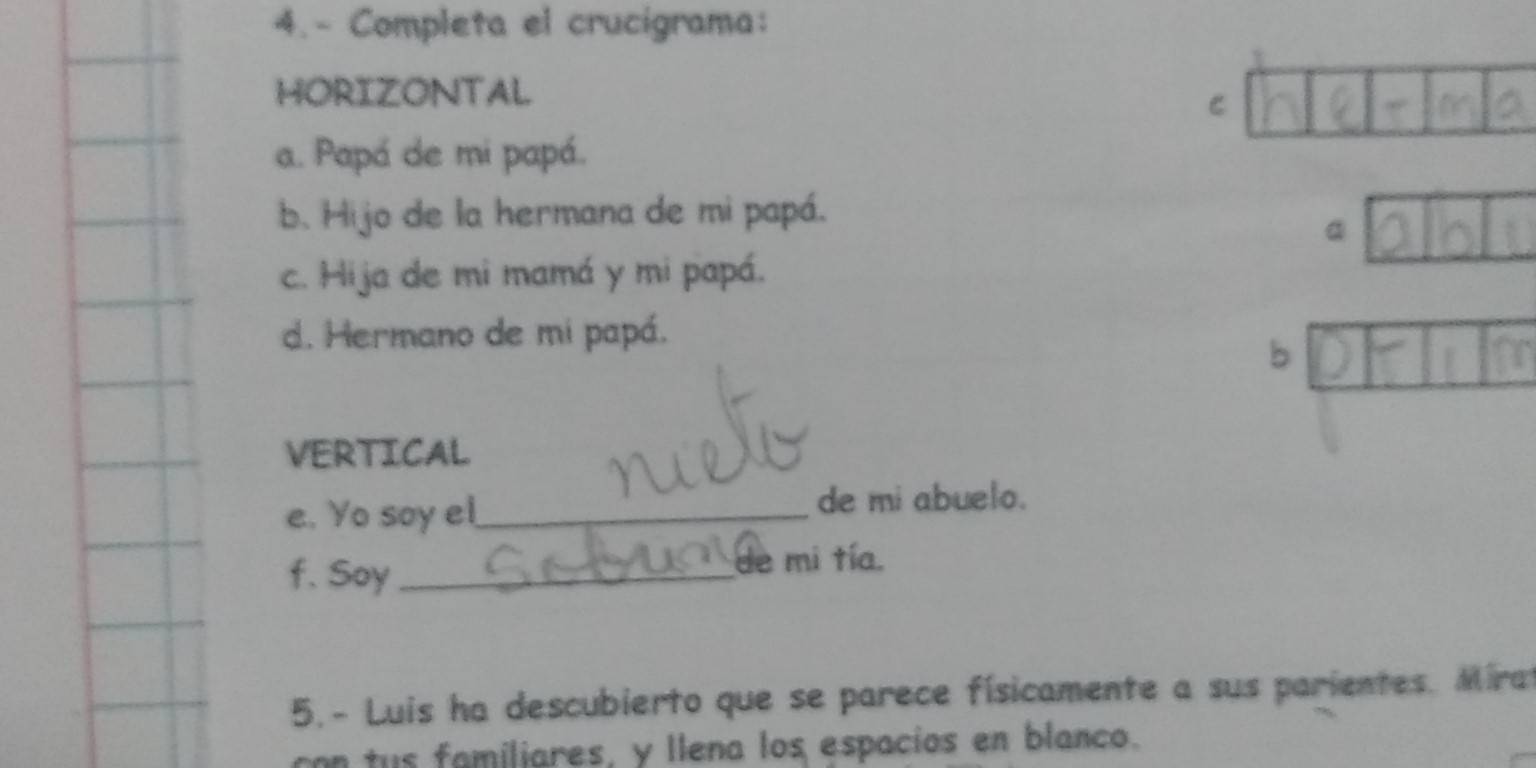 4.- Completa el crucigrama:
HORIZONTAL
a. Papá de mi papá.
b. Hijo de la hermana de mi papá.
c. Hija de mi mamá y mi papá.
d. Hermano de mi papá.
c h e r m a
a a b u
b p r i m
VERTICAL
e. Yo soy el nieto de mi abuelo.
f. Soy de mi tía.
5.- Luis ha descubierto que se parece físicamente a sus parientes.
con tus familiares, y llena los espacios en blanco.